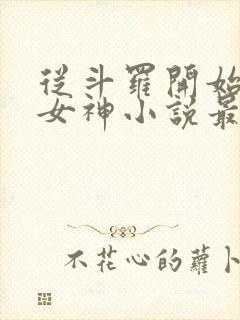 從斗羅開始
女神小說最
不花心的蘿卜